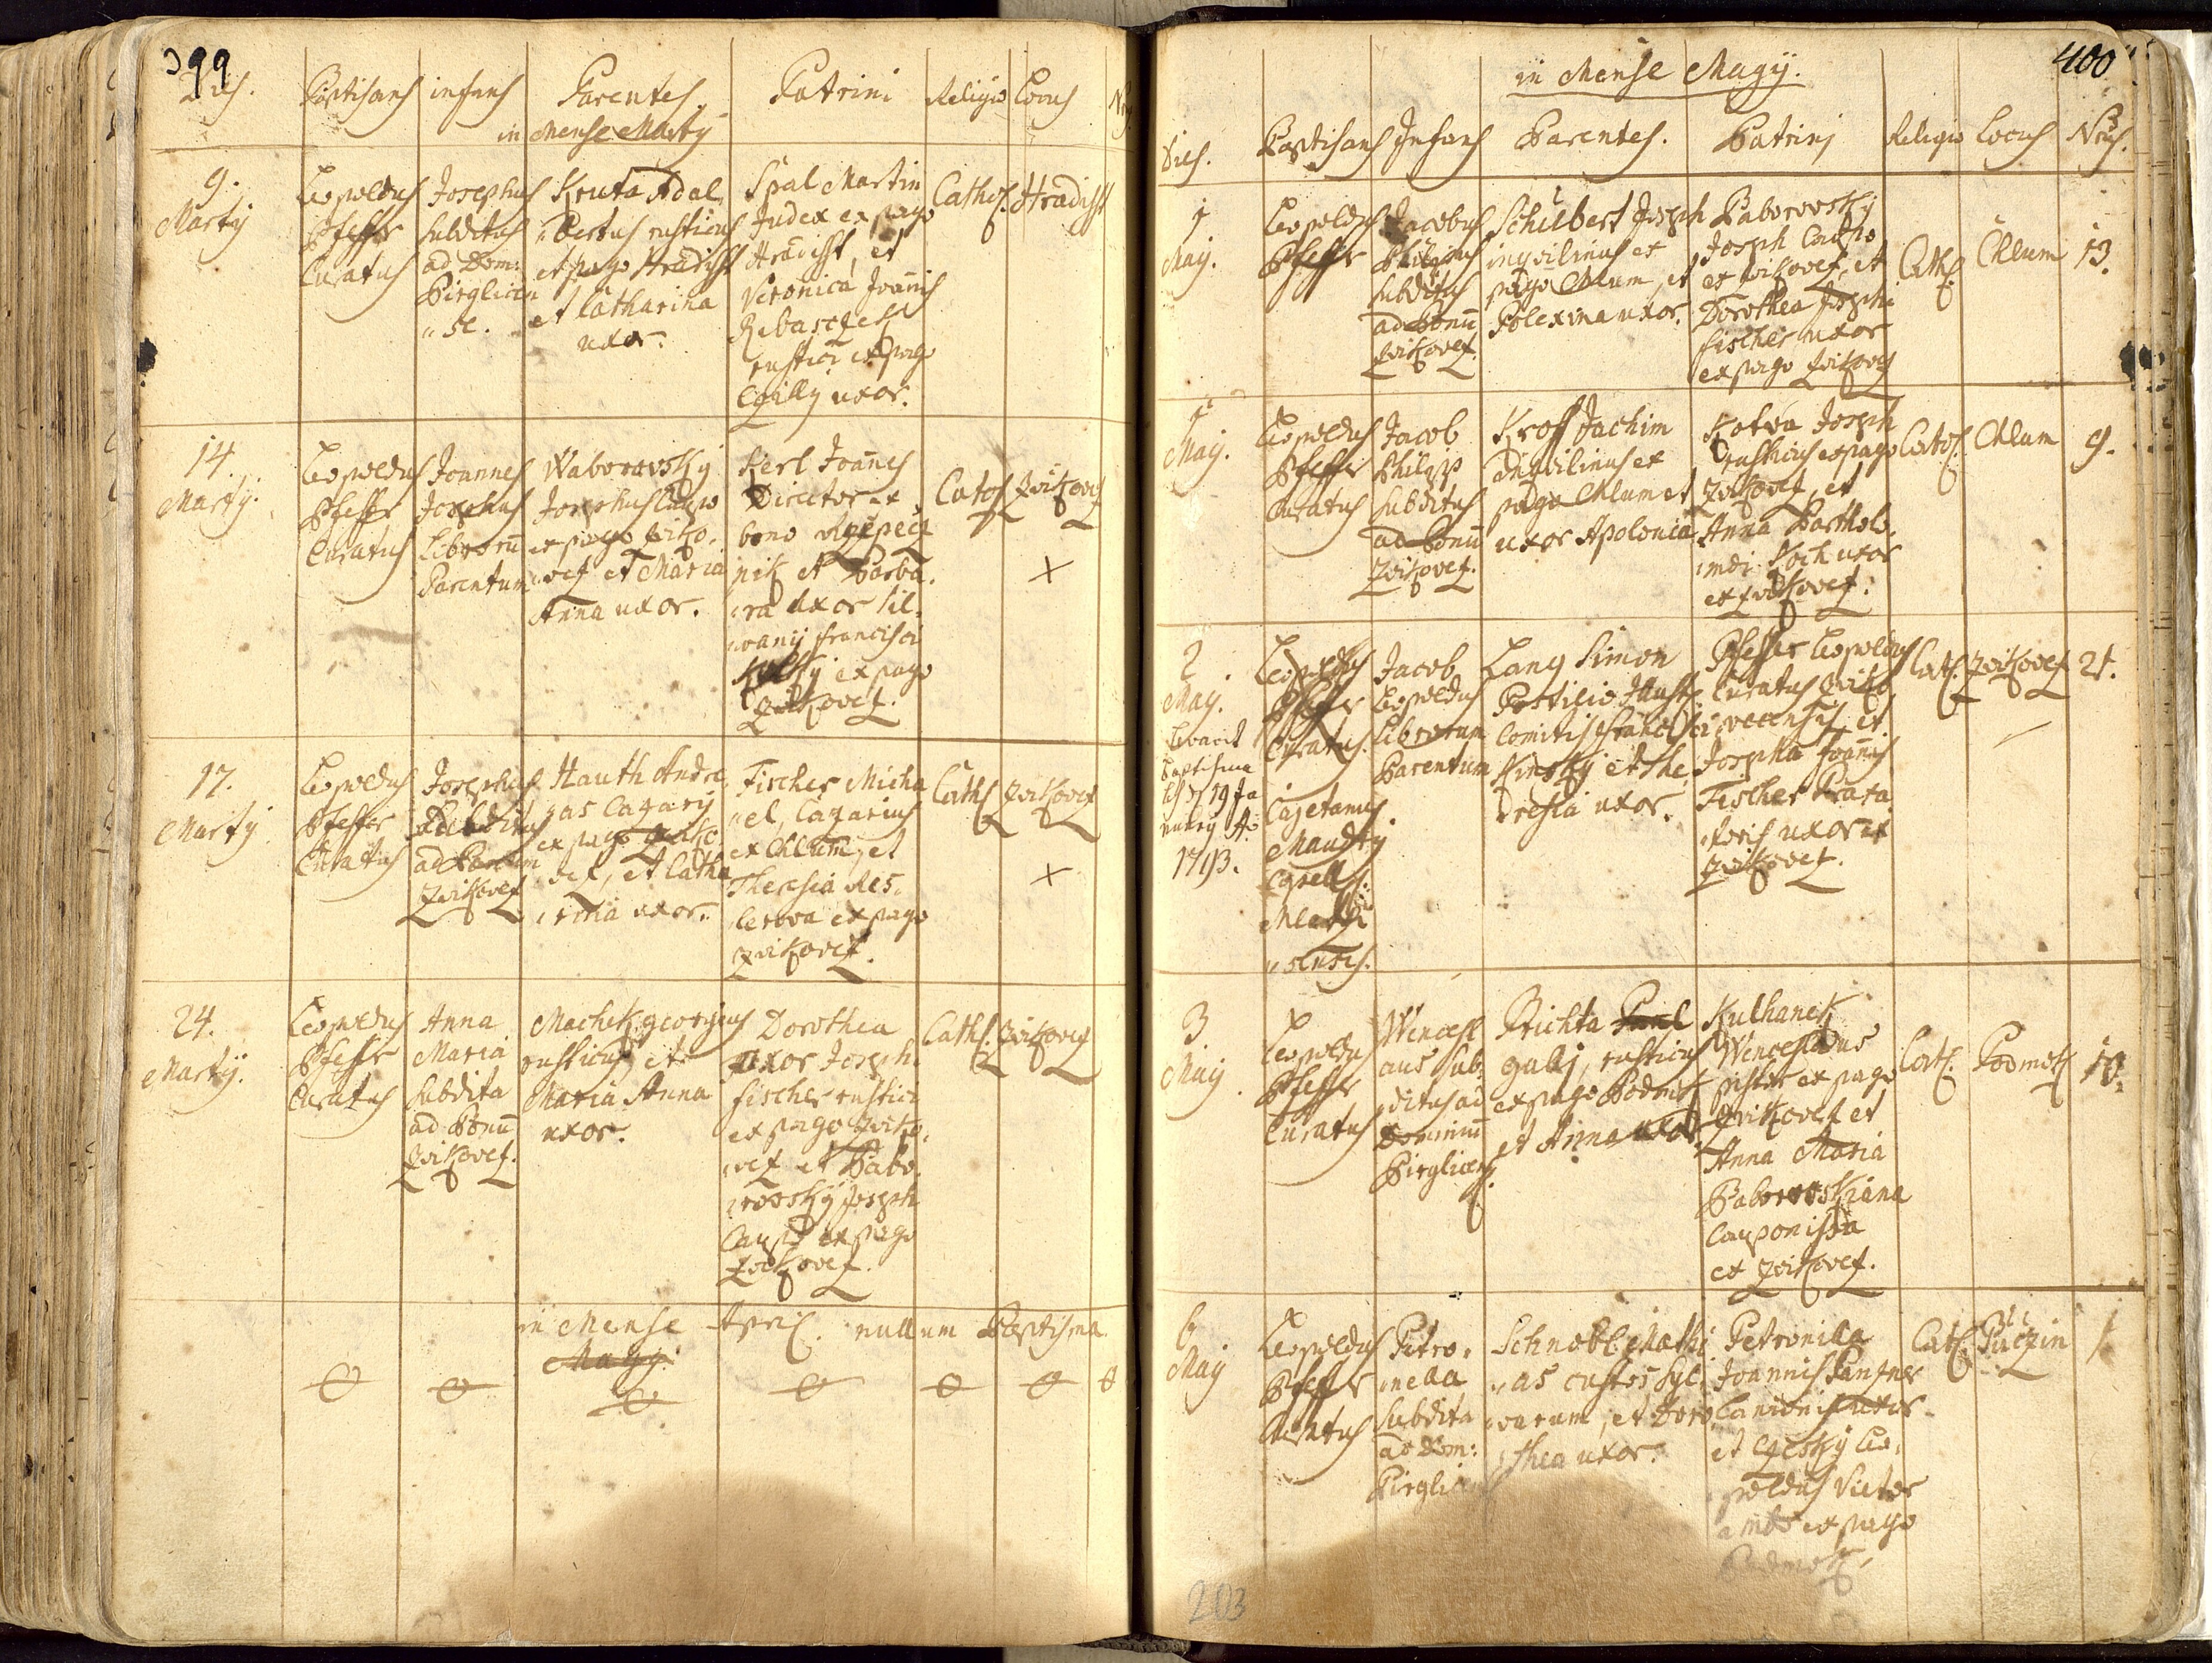 399
Dies. Baptisans infans Parentes Patrini Religio Locus Nrus
in Mense Martÿ
9.
Martÿ
Leopoldus
Pfeffer
Curatus
Josephus
subditus
ad Dom:
Pirglicen
„se.
Kruta Adal„
„bertus rusticus
ex pago Hradisst
et Catharina
uxor.
Spal Martin
Judex ex pago
Hradisst, et
Veronica Joannis
rustici ex pago
uxor.
Cathol. Hradisst
14.
Martÿ.
Leopoldus
Pfeffer
Curatus
Joannes
Josephus
Liberorum
Parentum
Waborovsky
Josephus Caupo
ex pago Zwiko„
„vez et Maria
Anna uxor.
Kerl Joannes
Director ex
bono
et Barba„
„ra uxor Sil„
„vanÿ Francisci
ex pago
Zwikovez.
Cathol Zwikovez
x
17.
Martÿ
Leopoldus
Pfeffer
Curatus
Josephus
subditus
ad Bonum
Zwikovez
Hauth Andre„
„as
ex pago Zwiko„
„vez, et Catha„
„rina uxor.
Fischer Micha„
„el,
ex Chlum, et
Theresia
ex pago
Zwikovez.
Cath Zwikovez
x
24.
Martÿ.
Leopoldus
Pfeffer
Curatus
Anna
Maria
subdita
ad Bonū
Zwikovez.
Machek georgius
rusticus, et
Maria Anna
uxor.
Dorothea
uxor Josephi
Fischer rustici
ex pago Zwiko„
„vez et Babo„
„rovsky Joseph
Caupo ex pago
Zwikovez.
Cath. Zwikovez
in Mense April. nullum Baptisma
Magÿ.
400
in Mense Magÿ.
Dies. Baptisans Infans Parentes. Patrinj Religio Locus Nrus.
1
Maÿ.
Leopoldus
Pfeffer
Jacobus
Philippus
subditus
ad Bonū
Zwikovez.
Schilbert Joseph
inquilinus ex
pago Chlum, et
Polexina uxor.
Baborovsky
Joseph Caupo
ex Zwikovez, et
Dorothea Josephi
Fischer uxor
ex pago Zwikovez
Cath. Chlum 13.
1
Maÿ.
Leopoldus
Pfeffer
Curatus
Jacob
Philipp
subditus
ad Bonū
Zwikovez.
Krof Jachim
inquilinus ex
pago Chlum et
uxor Apolonia
Kotva Joseph
rusticus ex pago
Zwikovez, et
Anna Bartholo„
„mei Koch uxor
ex Zwikovez.
Cathol. Chlum 9.
2
Maÿ.
Levavit
Baptisma
19 Ja
nuarÿ Ao
1793.
Leopoldus
Pfeffer
Curatus.
Cajetanus
Maudry
Jacob
Leopoldus
Liberorum
Parentum
Lang Simon
Postilio Illust.
Comitis Francisci
Kinsky et The„
„resia uxor.
Pfeffer Leopoldus
Curatus Zwiko„
„vecensis, et
Josepha Joannis
Fischer
uxor ex
Zwikovez.
Cat. Zwikovez 21.
3
Maÿ
Leopoldus
Pfeffer
Curatus
Wencesl
aus sub„
„ditus ad
Dominiū
Pirglicens.
Brichta Paul
galj, rusticus
ex pago Podmok
et Anna uxor
Kulhanek
Wenceslaus
pistor ex pago
Zwikovez et
Anna Maria
Baborovskiana
Cauponissa
ex Zwikovez.
Cat. Podmok 10.
6
Maÿ
Leopoldus
Pfeffer
Curatus
Petro„
„nella
subdita
ad Dom:
Pirglic
Schnobl Mathi
„as custos Syl„
„varum, et Doro„
„thea uxor.
Petronilla
Joannis
uxor
et Leo„
„poldus Victor
ambo ex pago
Podmok.
Cat. 1
203